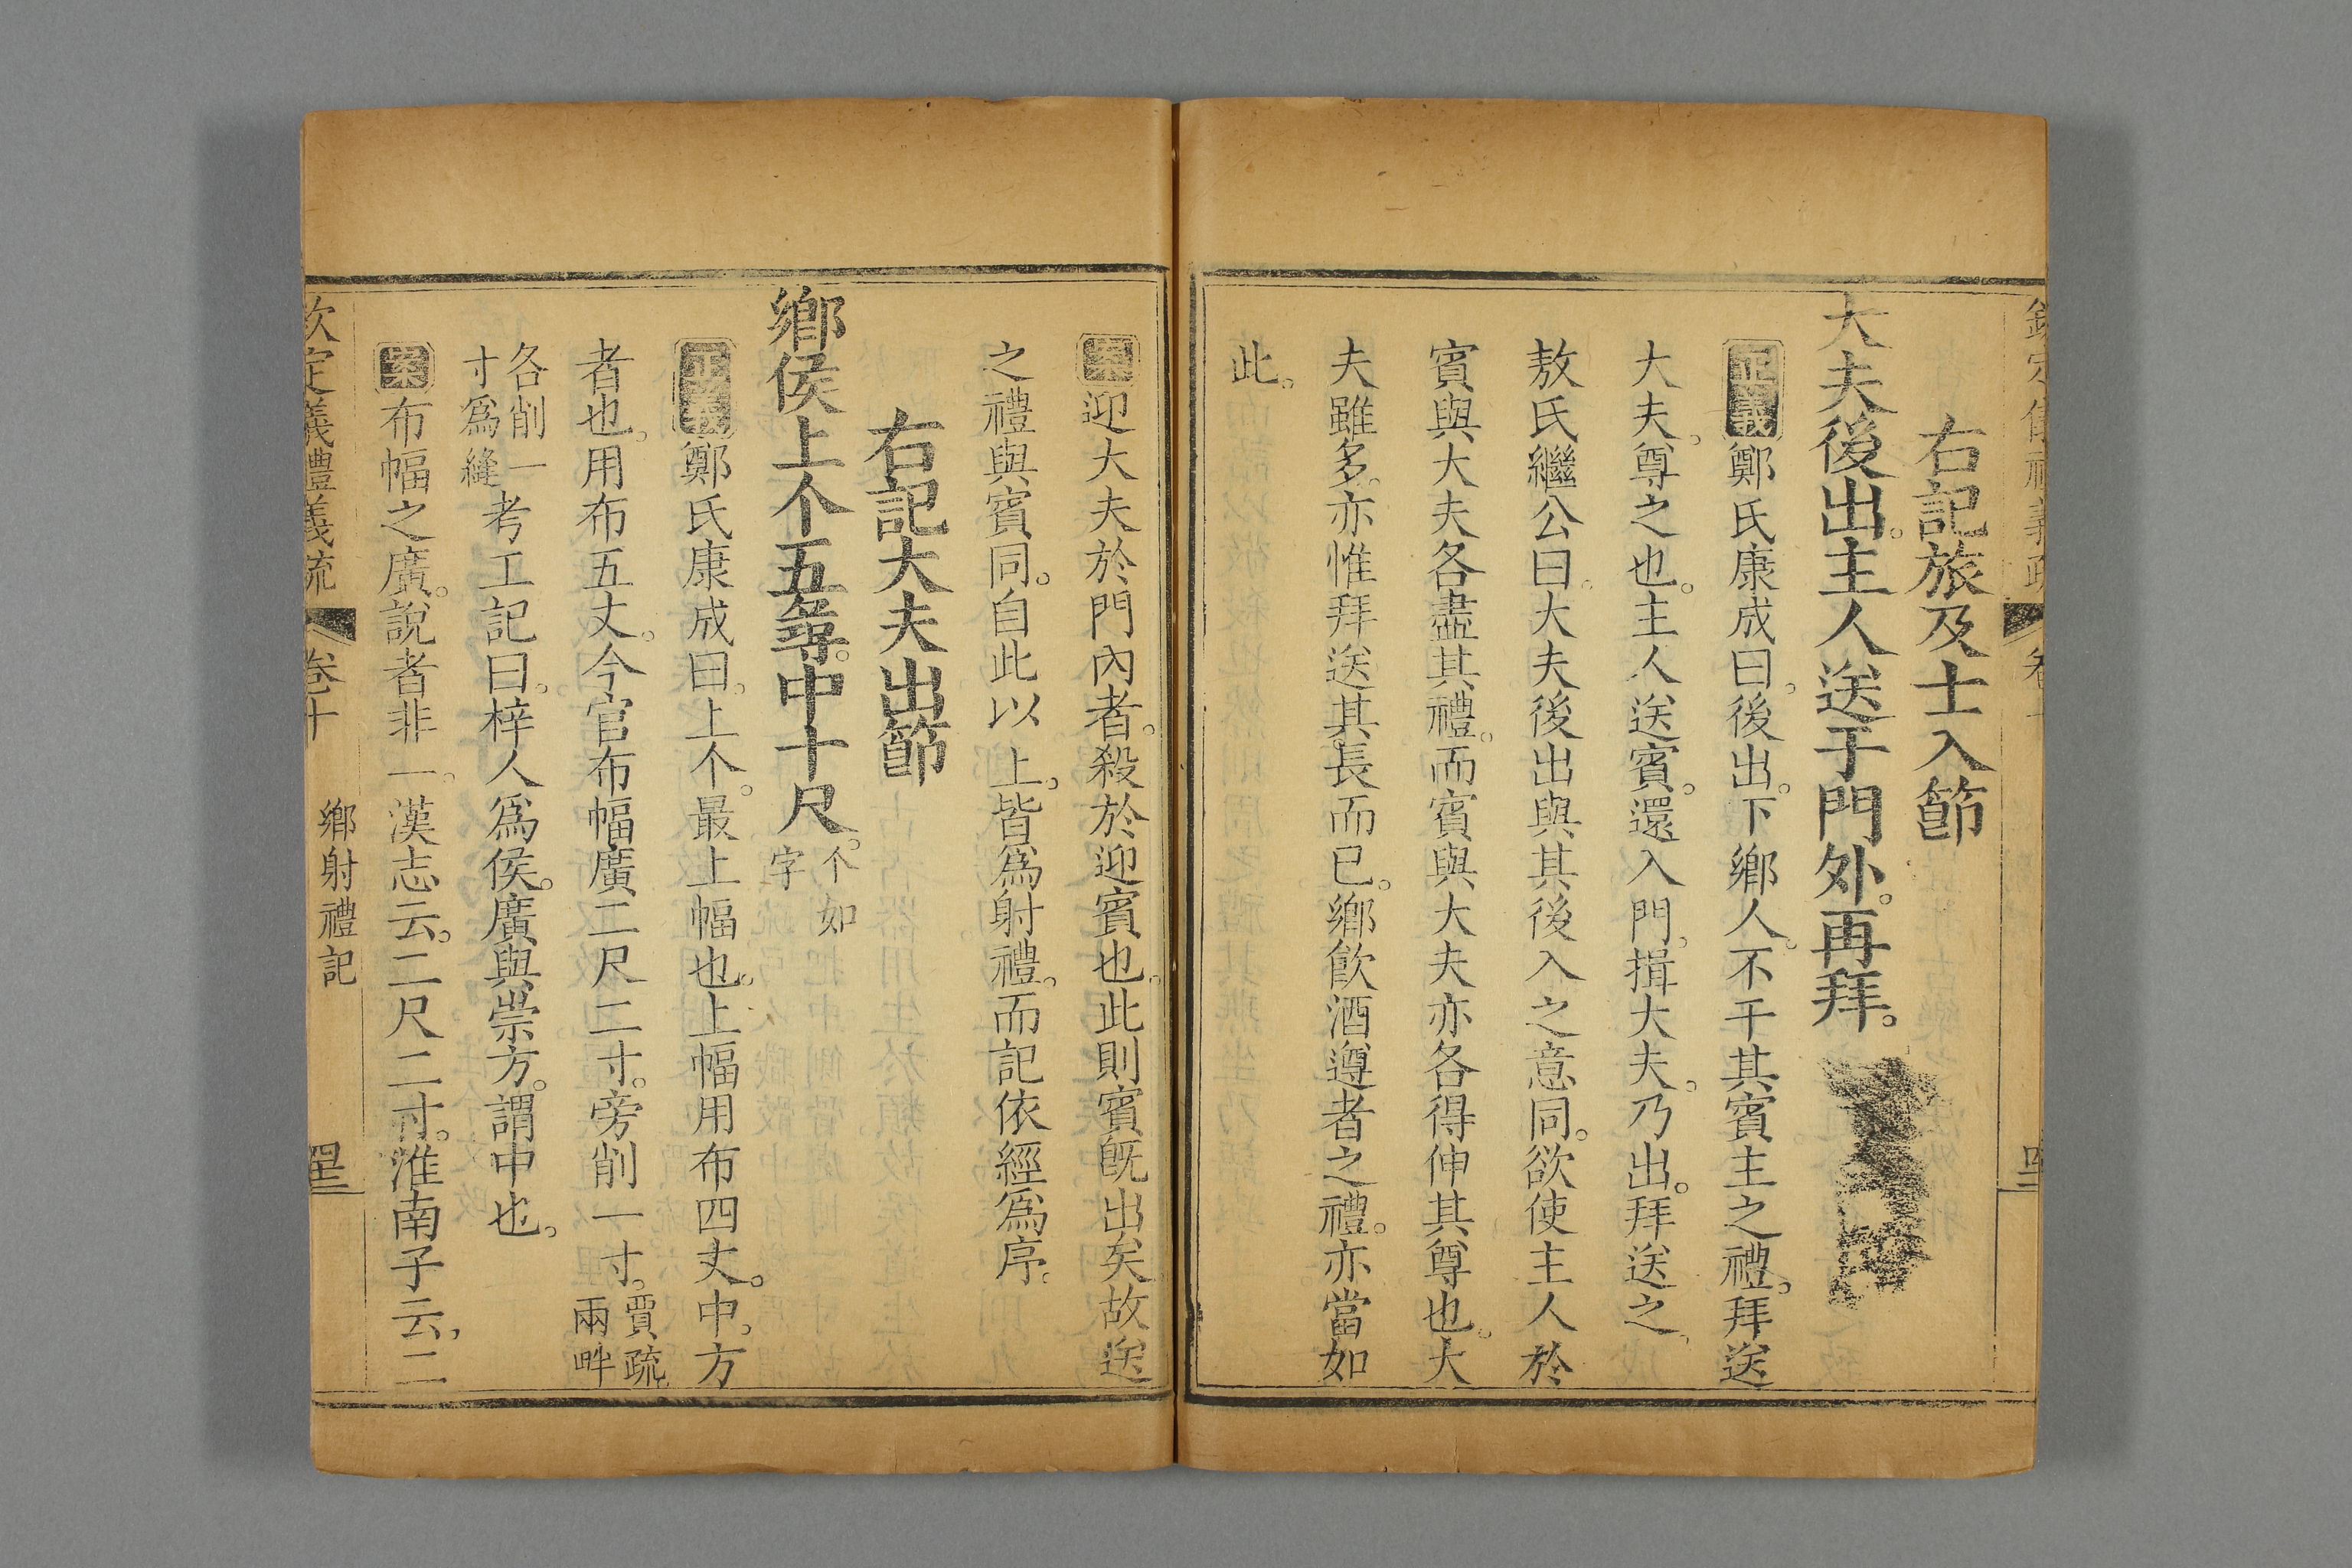 右記旅及士入節
大夫後出。主人送于門外。再拜。
正義鄭氏康成曰。後出。下鄉人。不干其賓主之禮。拜送
大夫。尊之也。主人送賓。還入門。揖大夫。乃出。拜送之。
敖氏繼公曰。大夫後出與其後入之意同。欲使主人於
賓與大夫各盡其禮。而賓與大夫亦各得伸其尊也。大
夫雖多。亦惟拜送其長而已。鄉飮酒遵者之禮。亦當如
此。
案迎大夫於門內者。殺於迎賓也。此則賓旣出矣故送
之禮與賓同。自此以上。皆爲射禮。而記依經爲序。
右記大夫出節
鄉侯上个五尋。中十尺。个如
字
正義鄭氏康成曰。上个。最上幅也。上幅用布四丈。中。方
者也。用布五丈。今官布幅廣二尺二寸。旁削一寸。賈疏
兩畔
各削一
寸爲縫考工記曰。梓人爲侯。廣與崇方。謂中也。
案布幅之廣。說者非一。漢志云。二尺二寸。淮南子云。二
欽定義禮義疏 卷十 鄉射禮記